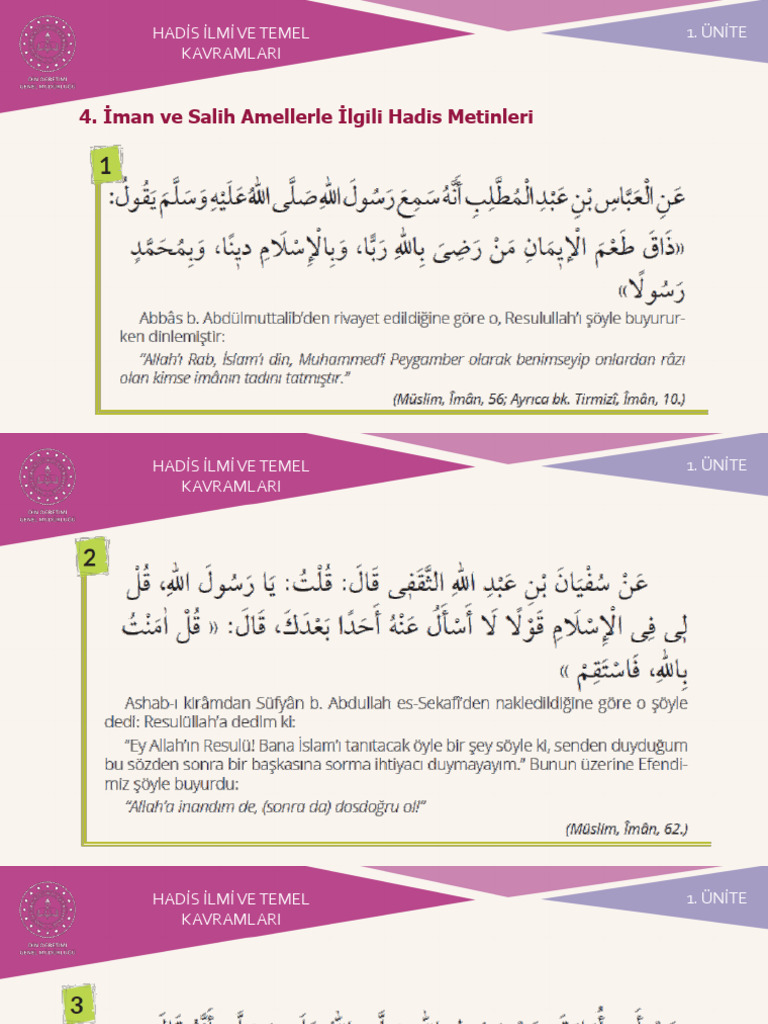 HADİS İLMİ VE TEMEL
KAVRAMLARI
1. ÜNİTE
4. İman ve Salih Amellerle İlgili Hadis Metinleri
1
عَنِ الْعَبَّاسِ بْنِ عَبْدِ الْمُطَّلِبِ أَنَّهُ سَمِعَ رَسُولَ اللّٰهِ صَلَّى اللّٰهُ عَلَيْهِ وَسَلَّمَ يَقُولُ:
«ذَاقَ طَعْمَ الْإِيمَانِ مَنْ رَضِيَ بِاللّٰهِ رَبًّا، وَبِالْإِسْلَامِ دِينًا، وَبِمُحَمَّدٍ
رَسُولًا»
Abbâs b. Abdülmuttalib’den rivayet edildiğine göre o, Resulullah’ı şöyle buyurur-
ken dinlemiştir:
“Allah’ı Rab, İslam’ı din, Muhammed’i Peygamber olarak benimseyip onlardan râzı
olan kimse imânın tadını tatmıştır.”
(Müslim, Îmân, 56; Ayrıca bk. Tirmizî, Îmân, 10.)
HADİS İLMİ VE TEMEL
KAVRAMLARI
1. ÜNİTE
2
عَنْ سُفْيَانَ بْنِ عَبْدِ اللّٰهِ الثَّقَفِي قَالَ: قُلْتُ: يَا رَسُولَ اللّٰهِ، قُلْ
لِي فِي الْإِسْلَامِ قَوْلًا لَا أَسْأَلُ عَنْهُ أَحَدًا بَعْدَكَ، قَالَ: « قُلْ اٰمَنْتُ
بِاللّٰهِ، فَاسْتَقِمْ »
Ashab-ı kirâmdan Süfyân b. Abdullah es-Sekafî’den nakledildiğine göre o şöyle
dedi: Resulüllah’a dedim ki:
“Ey Allah’ın Resulü! Bana İslam’ı tanıtacak öyle bir şey söyle ki, senden duyduğum
bu sözden sonra bir başkasına sorma ihtiyacı duymayayım.” Bunun üzerine Efendi-
miz şöyle buyurdu:
“Allah’a inandım de, (sonra da) dosdoğru ol!”
(Müslim, Îmân, 62.)
HADİS İLMİ VE TEMEL
KAVRAMLARI
1. ÜNİTE
3